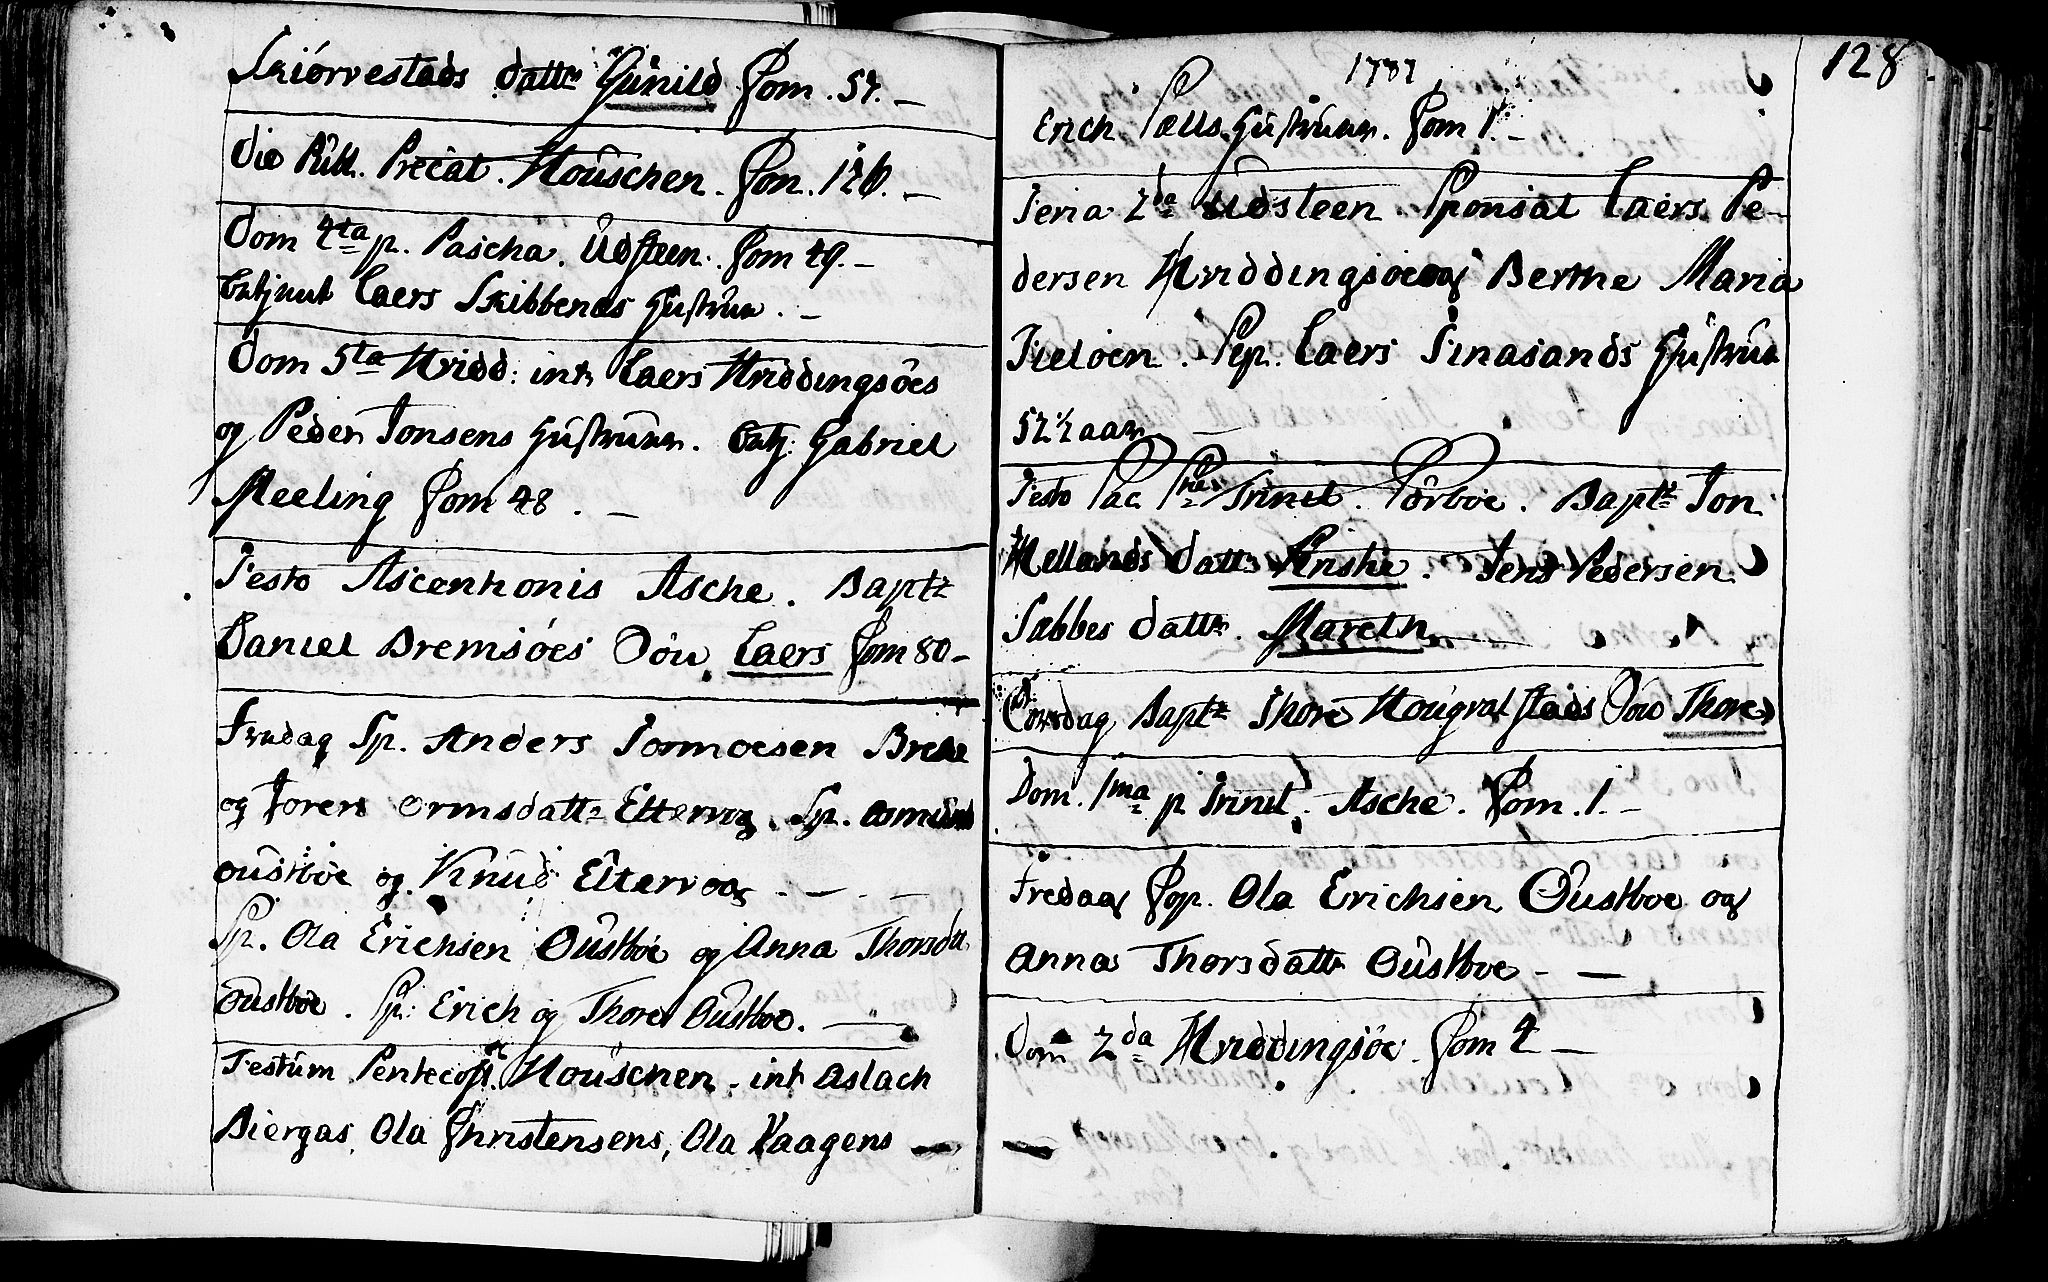 Skiørvestads datt. Gûnild Com. 57. —
Die Publ. Precat. Houschen. Com. 126. —
Dom 4ta p. Pascha. Udsteen. Com 49. —
Laers Skibbenæs Hustrue. —
Dom 5ta Hvidd: int. Laers Hviddingsöes
og Peder Jonsens Hustruer. Gabriel
Meeling Com 48. —
Festo Ascentionis Asche. Bapt.
Daniel Bremsöes Sön Laers Com 80 —
Fredag Sp. Anders Tormoesen Brche
og Toren Ormsdatt. Eltervog. Sp. Omund
Oustböe og Knud Eltervog — —
Sp. Ola Erichsen Oustböe og Anna Thorsdtt.
Oustböe. Sp: Erich og Thore Oustboe. —
Festum Pentecost. Houschen. int. Aslach
Biergas, Ola Christensens, Ola Haagens
128
1787
Erich Pælls Hustruer. Com 1. —
Feria 2da Udsteen. Sponsal Laers Pe-
dersen Hviddingsöe og Berthe Maria
Fieloen. Sep. Laers Finasands Hustrue
52 1/2 aar —
Festo Sac. Trinit. Sörboe. Bapt. Jon
Mellands datt. Kirstie. Jens Pedersen
Sæbbes datt. Mareth
Torsdag Bapt. Thore Hougvalstads Sön Thore
Dom. 1ma p Trinit. Asche. Com. 1. —
Fredag Cop. Ola Erichsen Oustboe og
Anna Thorsdatt Oustboe — —
Dom 2da Hviddingsöe. Com 4 —